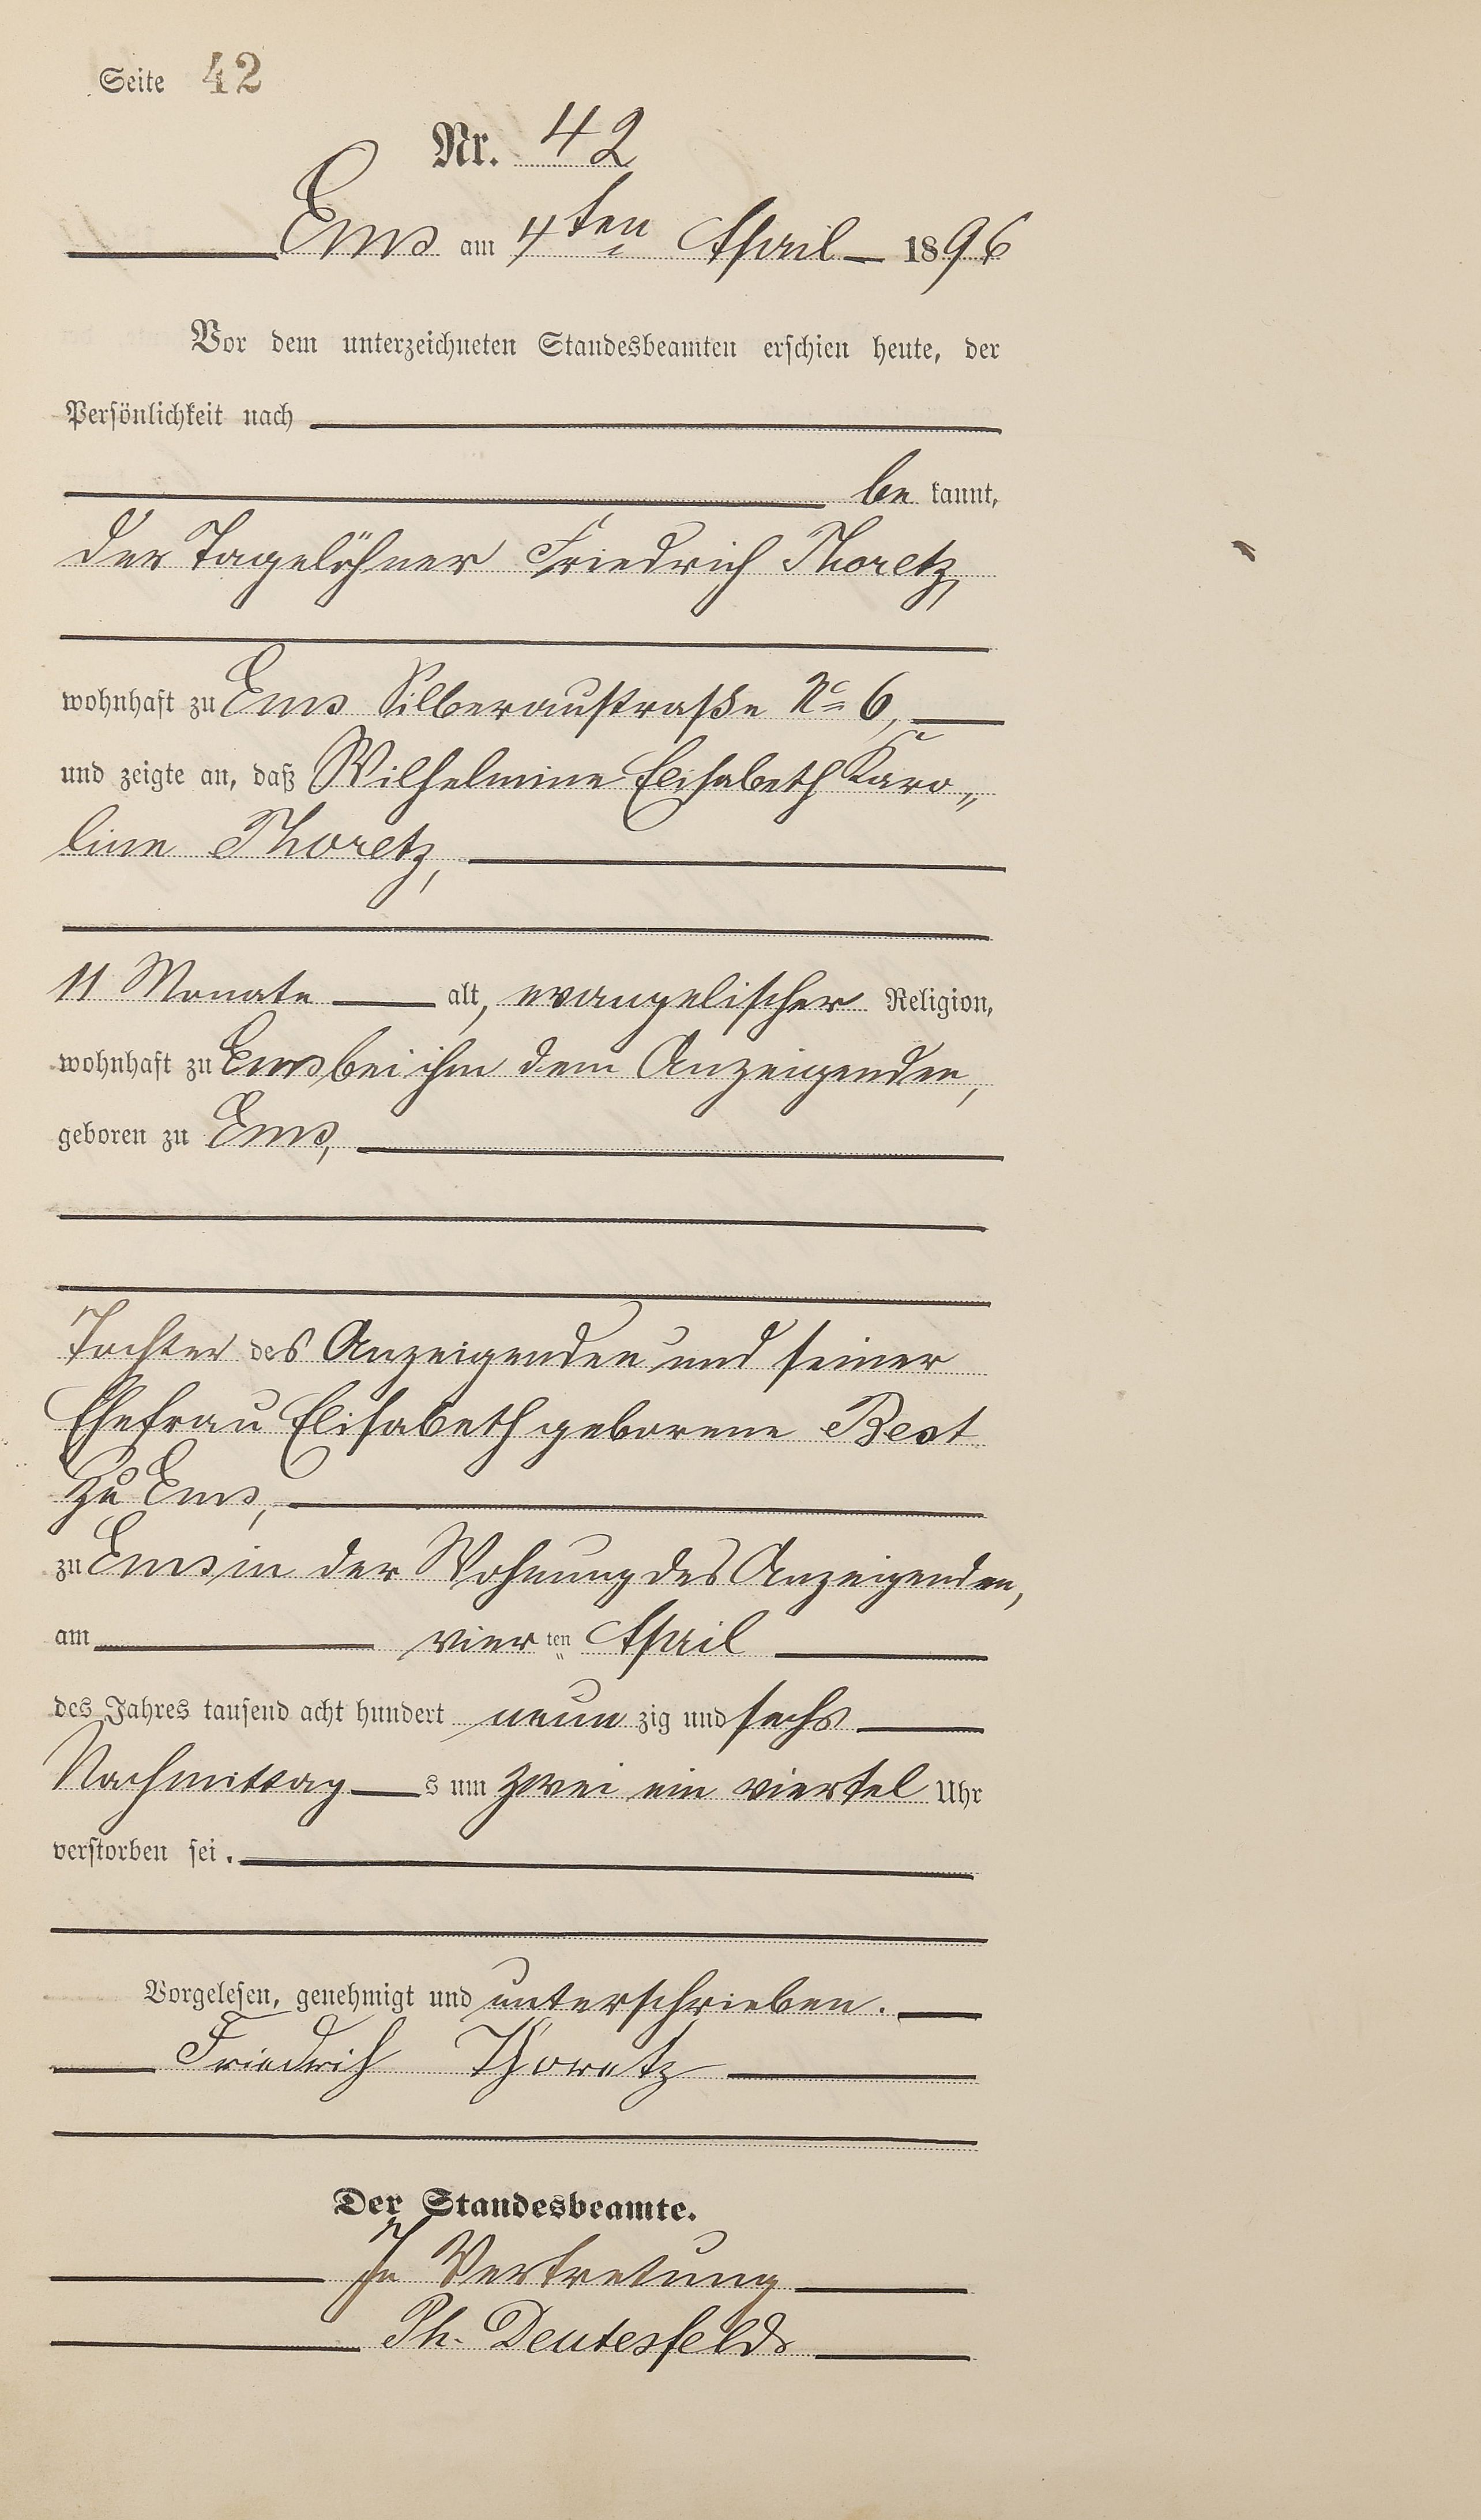 Seite 42
Nr. 42
Ems am 4ten April 1896
Vor dem unterzeichneten Standesbeamten erschien heute, der
Persönlichkeit nach
be kannt,
der Tagelöhner Friedrich Thoretz,
wohnhaft zu Ems Silberaustraße No 6,
und zeigte an, daß Wilhelmine Elisabeth Karo„
line Thoretz,
11 Monate alt, evangelischer Religion,
wohnhaft zu Ems bei ihm dem Anzeigenden,
geboren zu Ems,
Tochter des Anzeigenden und seiner
Ehefrau Elisabeth geborene Best
zu Ems,
zu Ems in der Wohnung des Anzeigenden,
am vier ten April
des Jahres tausend acht hundert neun zig und sechs
Nachmittag s um zwei ein viertel Uhr
verstorben sei.
Vorgelesen, genehmigt und unterschrieben.
Friedrich Thoretz
Der Standesbeamte.
In Vertretung
Ph. Deutesfeld